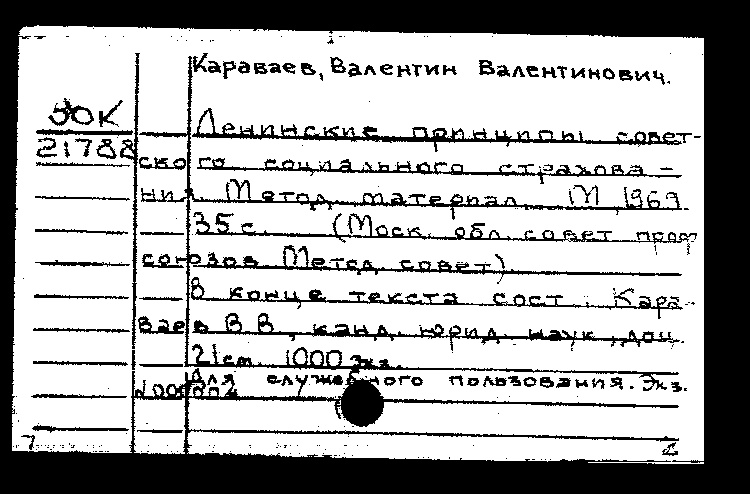 Караваев, Валентин Валентинович.
УОК
Ленинские принципы совет-
21788
ского социального страхова-
ния. Метод. материал. М., 1969.
35 с. (Моск. обл. совет проф
союзов. Метод. совет).
В конце текста сост.: Кара-
ваев В.В., канд. юрид. наук, доц.
21 см. 1000 экз.
Для служебного пользования. Экз.
7